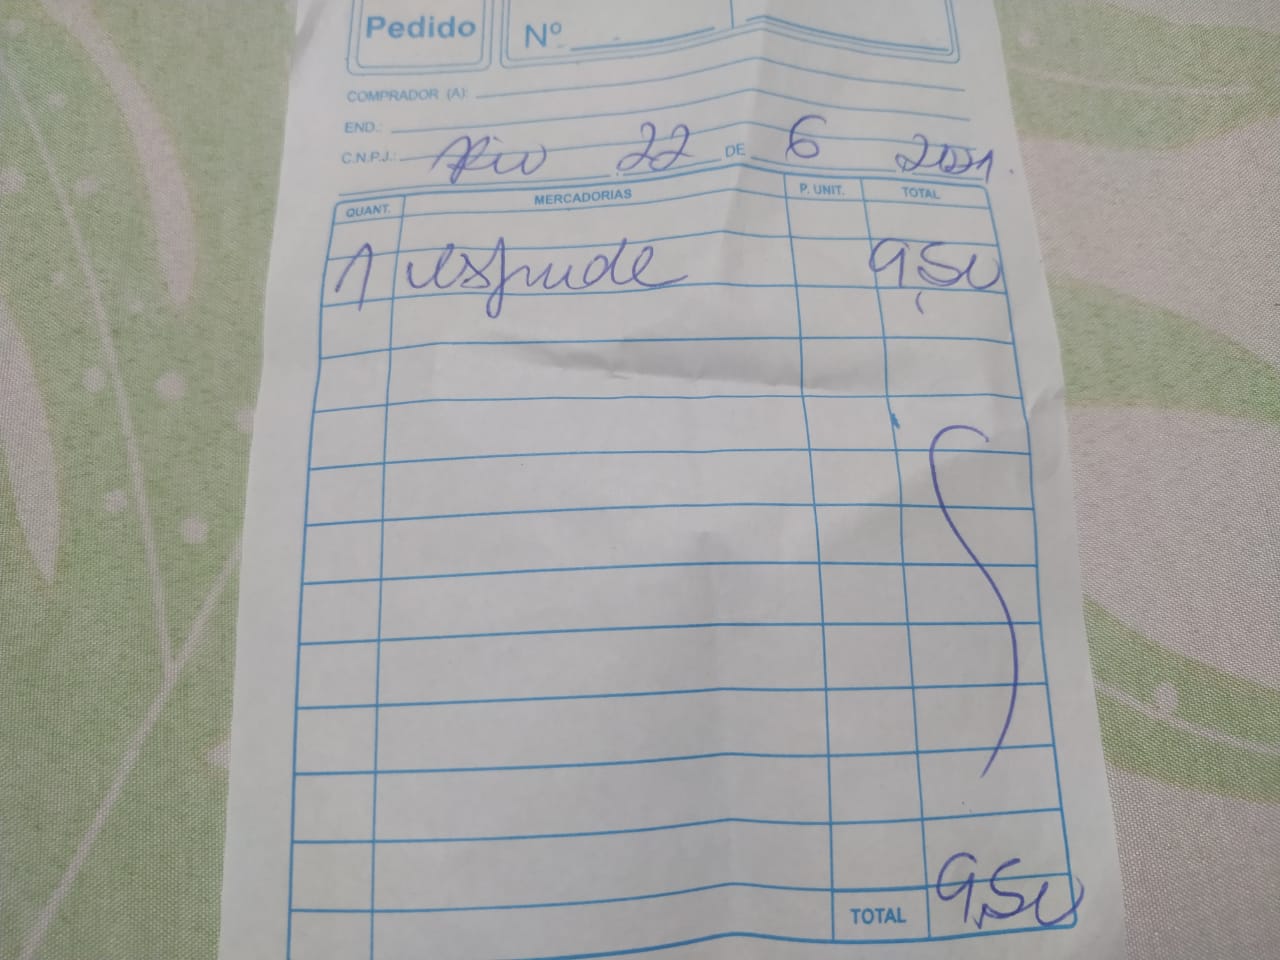 Pedido
Nº
COMPRADOR (A):
END.:
C.N.P.J.:
Rio 22 DE 6 2021.
QUANT. MERCADORIAS P. UNIT. TOTAL
1 9,50
TOTAL 9,50